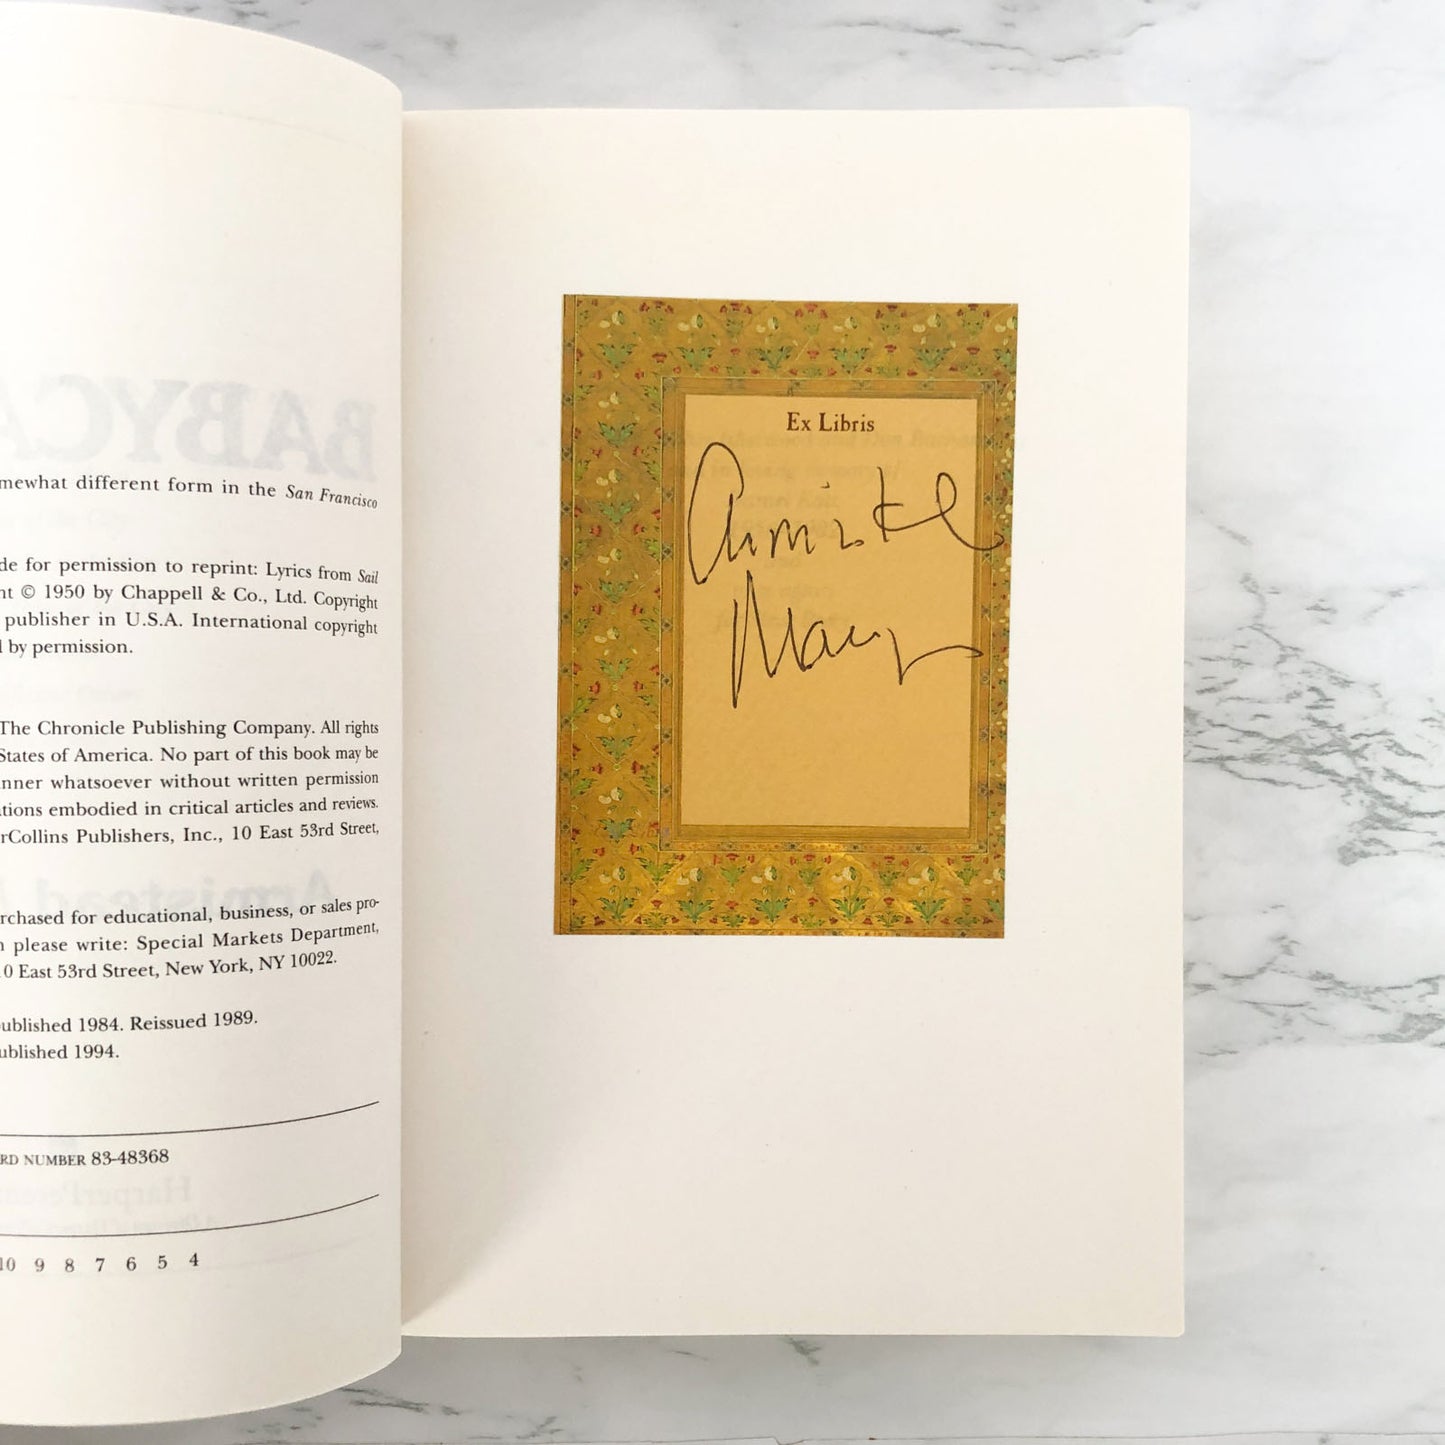 mewhat different form in the San Francisco
de for permission to reprint: Lyrics from Sail
nt © 1950 by Chappell & Co., Ltd. Copyright
publisher in U.S.A. International copyright
l by permission.
The Chronicle Publishing Company. All rights
States of America. No part of this book may be
nner whatsoever without written permission
tions embodied in critical articles and reviews.
rCollins Publishers, Inc., 10 East 53rd Street,
rchased for educational, business, or sales pro-
n please write: Special Markets Department,
10 East 53rd Street, New York, NY 10022.
ublished 1984. Reissued 1989.
ublished 1994.
RD NUMBER 83-48368
10 9 8 7 6 5 4
Ex Libris
Armistead
Maupin